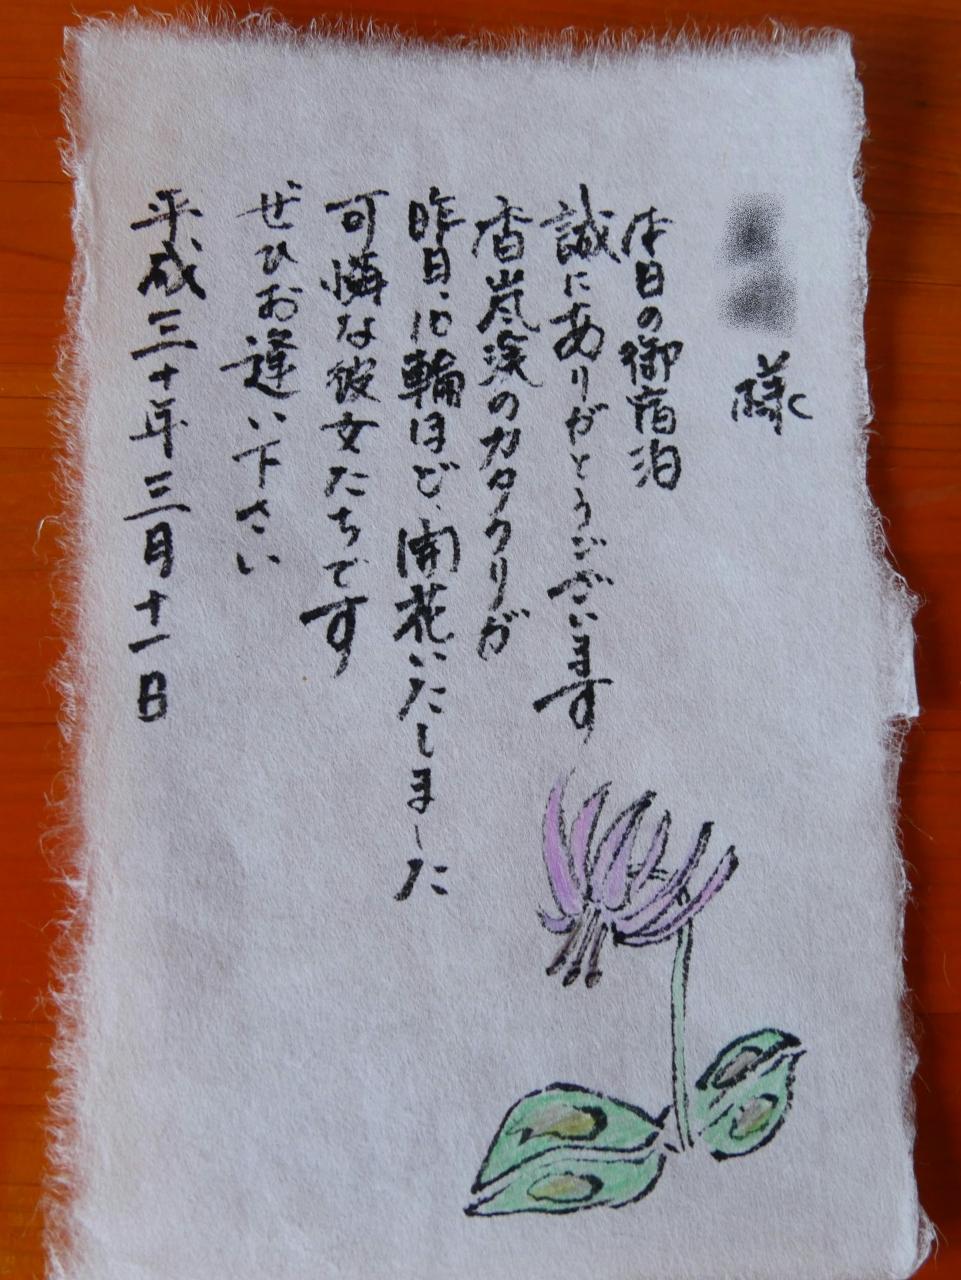 様
本日の御宿泊
誠にありがとうございます
香嵐渓のカタクリが
昨日、10輪ほど、開花いたしました
可憐な彼女たちです
ぜひお逢い下さい
平成三十年三月十一日